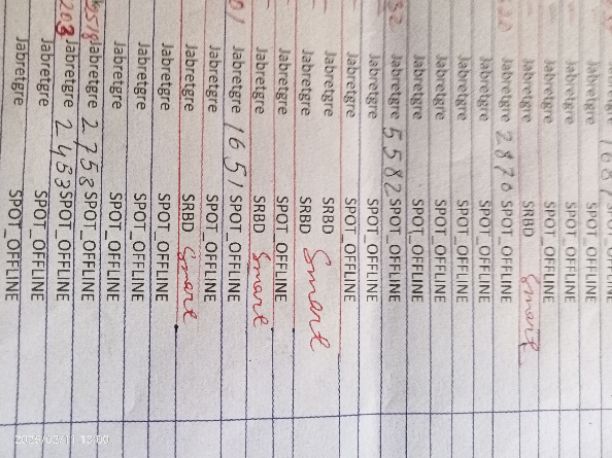 Jabretgre SPOT_OFFLINE
Jabretgre SPOT_OFFLINE
Jabretgre SPOT_OFFLINE
Jabretgre SRBD Smart
Jabretgre 2870 SPOT_OFFLINE
Jabretgre SPOT_OFFLINE
Jabretgre SPOT_OFFLINE
Jabretgre SPOT_OFFLINE
Jabretgre SPOT_OFFLINE
Jabretgre 5582 SPOT_OFFLINE
Jabretgre SPOT_OFFLINE
Jabretgre SPOT_OFFLINE
Jabretgre SRBD Smart
Jabretgre SRBD
Jabretgre SPOT_OFFLINE
Jabretgre SRBD Smart
Jabretgre 1651 SPOT_OFFLINE
Jabretgre SPOT_OFFLINE
Jabretgre SRBD Smart
Jabretgre SPOT_OFFLINE
Jabretgre SPOT_OFFLINE
Jabretgre SPOT_OFFLINE
Jabretgre 2758 SPOT_OFFLINE
203 Jabretgre 2453 SPOT_OFFLINE
Jabretgre SPOT_OFFLINE
Jabretgre SPOT_OFFLINE